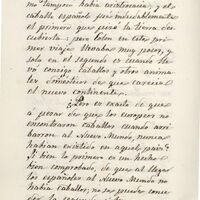 mo tampoco habia existencia, y el
caballo español fue indudablemente
el primero que pisó la tierra des-
cubierta; pero Colon en este pri-
mer viaje llevaba muy pocos, y
solo en el segundo es cuando lle-
vó consigo caballos y otros anima-
les domésticos de que carecia
el nuevo continente.
¿Pero es exacto de que
a pesar de que los europeos no
encontraron caballos cuando arri-
baron al Nuevo Mundo, nunca
habian existido en aquel pais?
Si bien lo primero es un hecho
bien comprobado, de que al llegar
los españoles al Nuevo Mundo no
habia caballos, no se puede conce-
der lo segundo